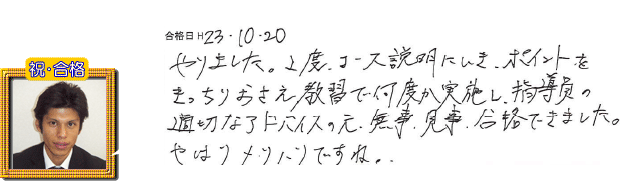 合格日 H23・10・20
祝・合格
やりました。2度、コース説明にいき、ポイントを
きっちりおさえ、教習で何度か実施し、指導員の
適切なアドバイスの元、無事、見事、合格できました。
やはりメリハリですね。